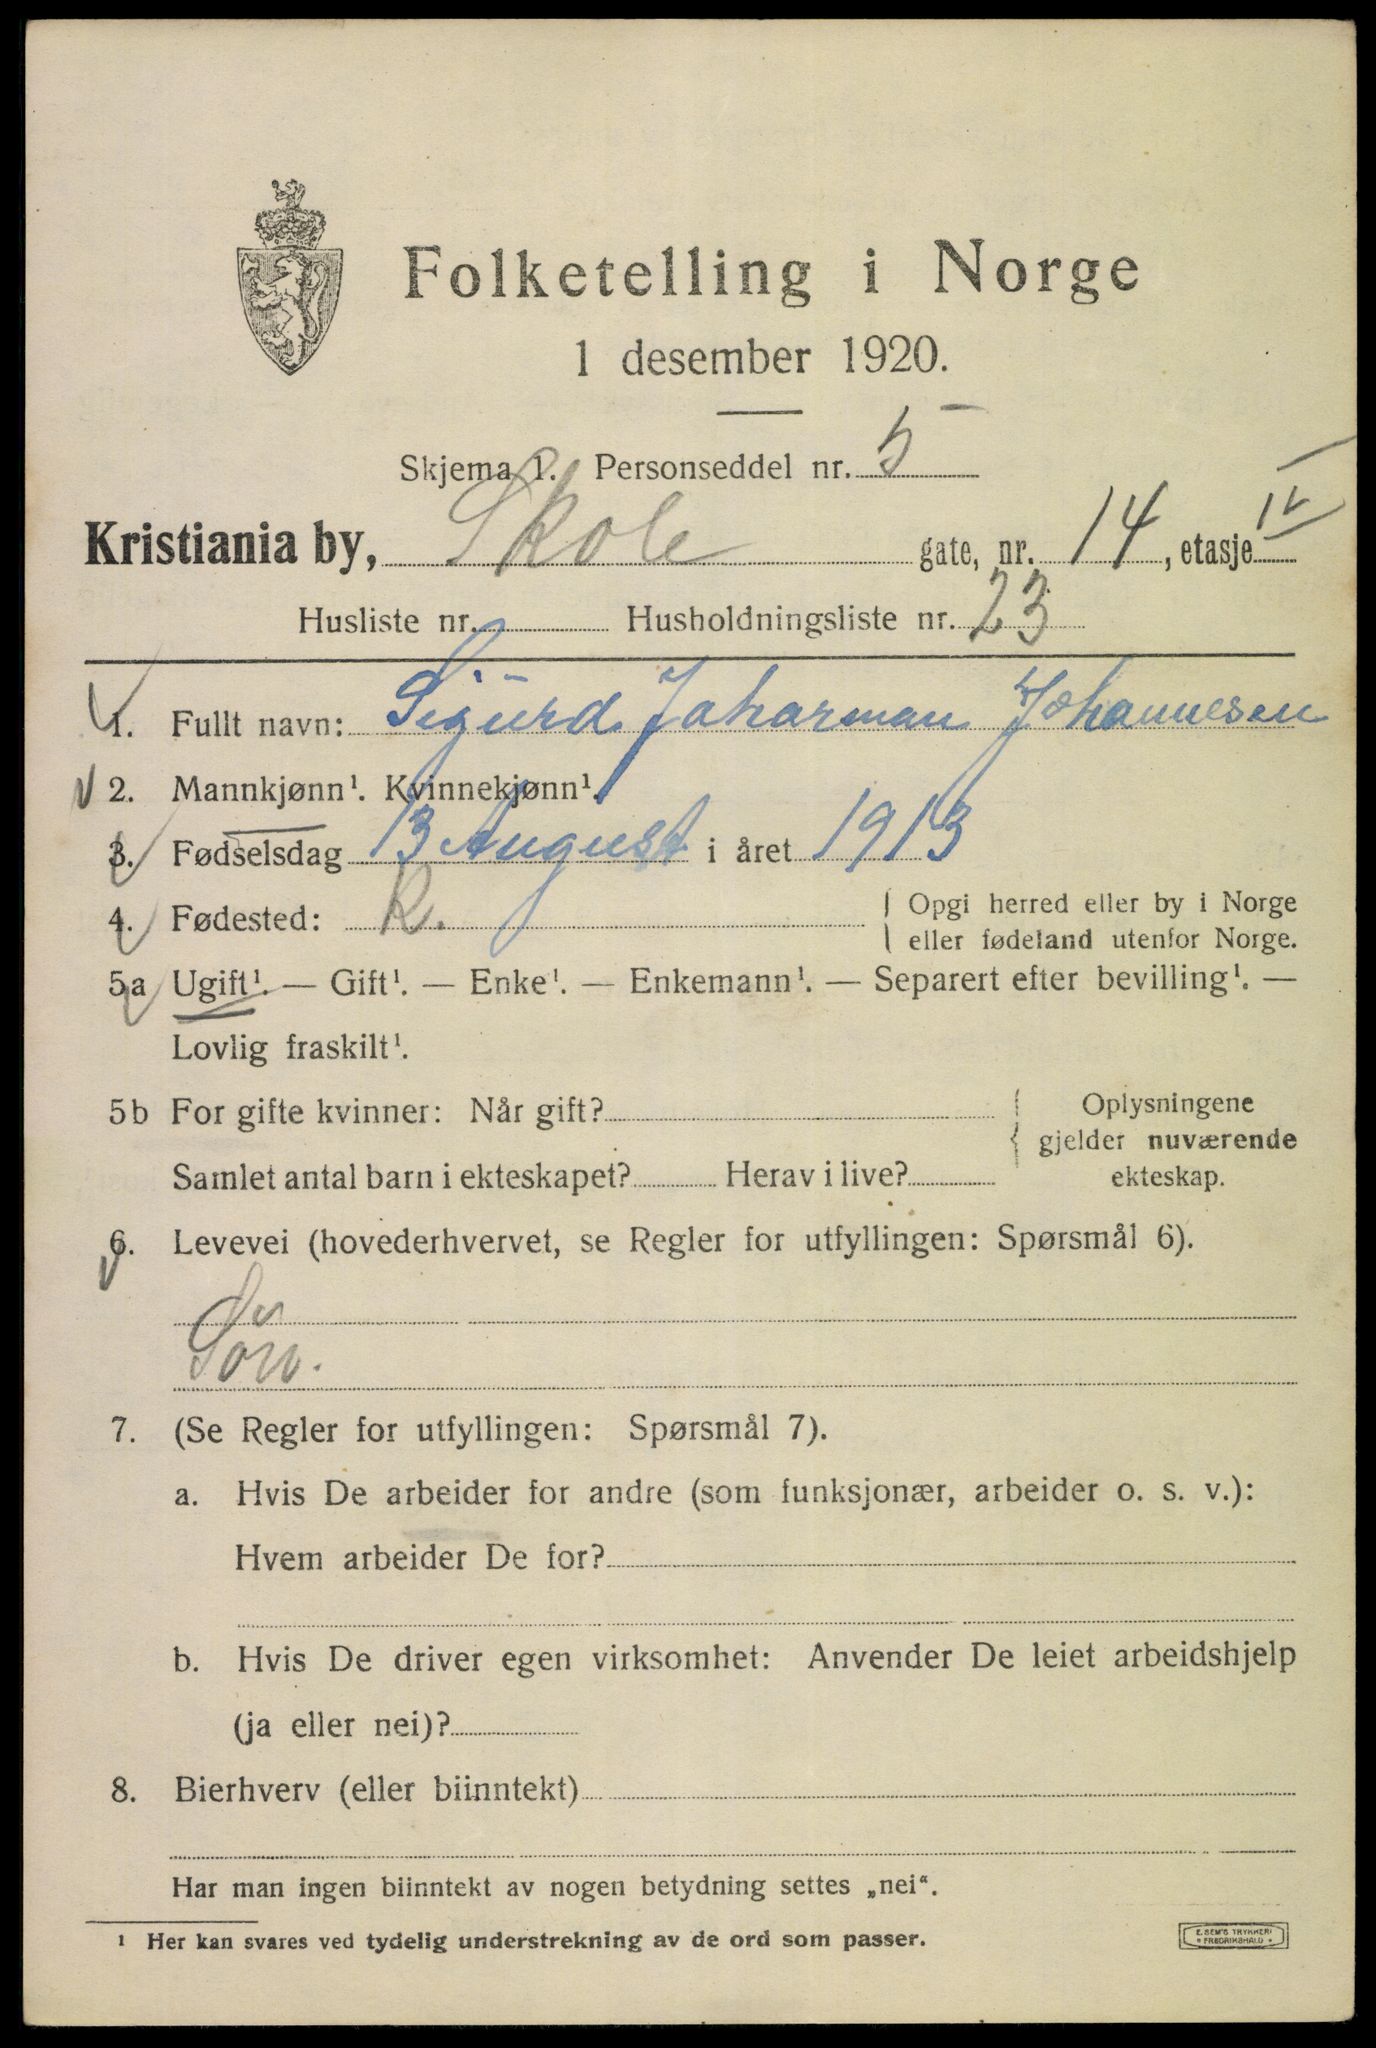 Folketelling i Norge
1 desember 1920.
Skjema 1. Personseddel nr. 5
Kristiania by, Skole gate, nr. 14, etasje IV
Husliste nr. Husholdningsliste nr. 23
1. Fullt navn: Sigurd Joharman Johannesen
2. Mannkjønn¹. Kvinnekjønn¹.
3. Fødselsdag 13 August i året 1913
4. Fødested: K. { Opgi herred eller by i Norge
eller fødeland utenfor Norge.
5a Ugift¹. — Gift¹. — Enke¹. — Enkemann¹. — Separert efter bevilling¹. —
Lovlig fraskilt¹.
5b For gifte kvinner: Når gift? { Oplysningene
gjelder nuværende
Samlet antal barn i ekteskapet? Herav i live? ekteskap.
6. Levevei (hovederhvervet, se Regler for utfyllingen: Spørsmål 6).
Søn.
7. (Se Regler for utfyllingen: Spørsmål 7).
a. Hvis De arbeider for andre (som funksjonær, arbeider o. s. v.):
Hvem arbeider De for?
b. Hvis De driver egen virksomhet: Anvender De leiet arbeidshjelp
(ja eller nei)?
8. Bierhverv (eller biinntekt)
Har man ingen biinntekt av nogen betydning settes „nei“.
¹ Her kan svares ved tydelig understrekning av de ord som passer.
E. SEM'S TRYKKERI
FREDRIKSHALD